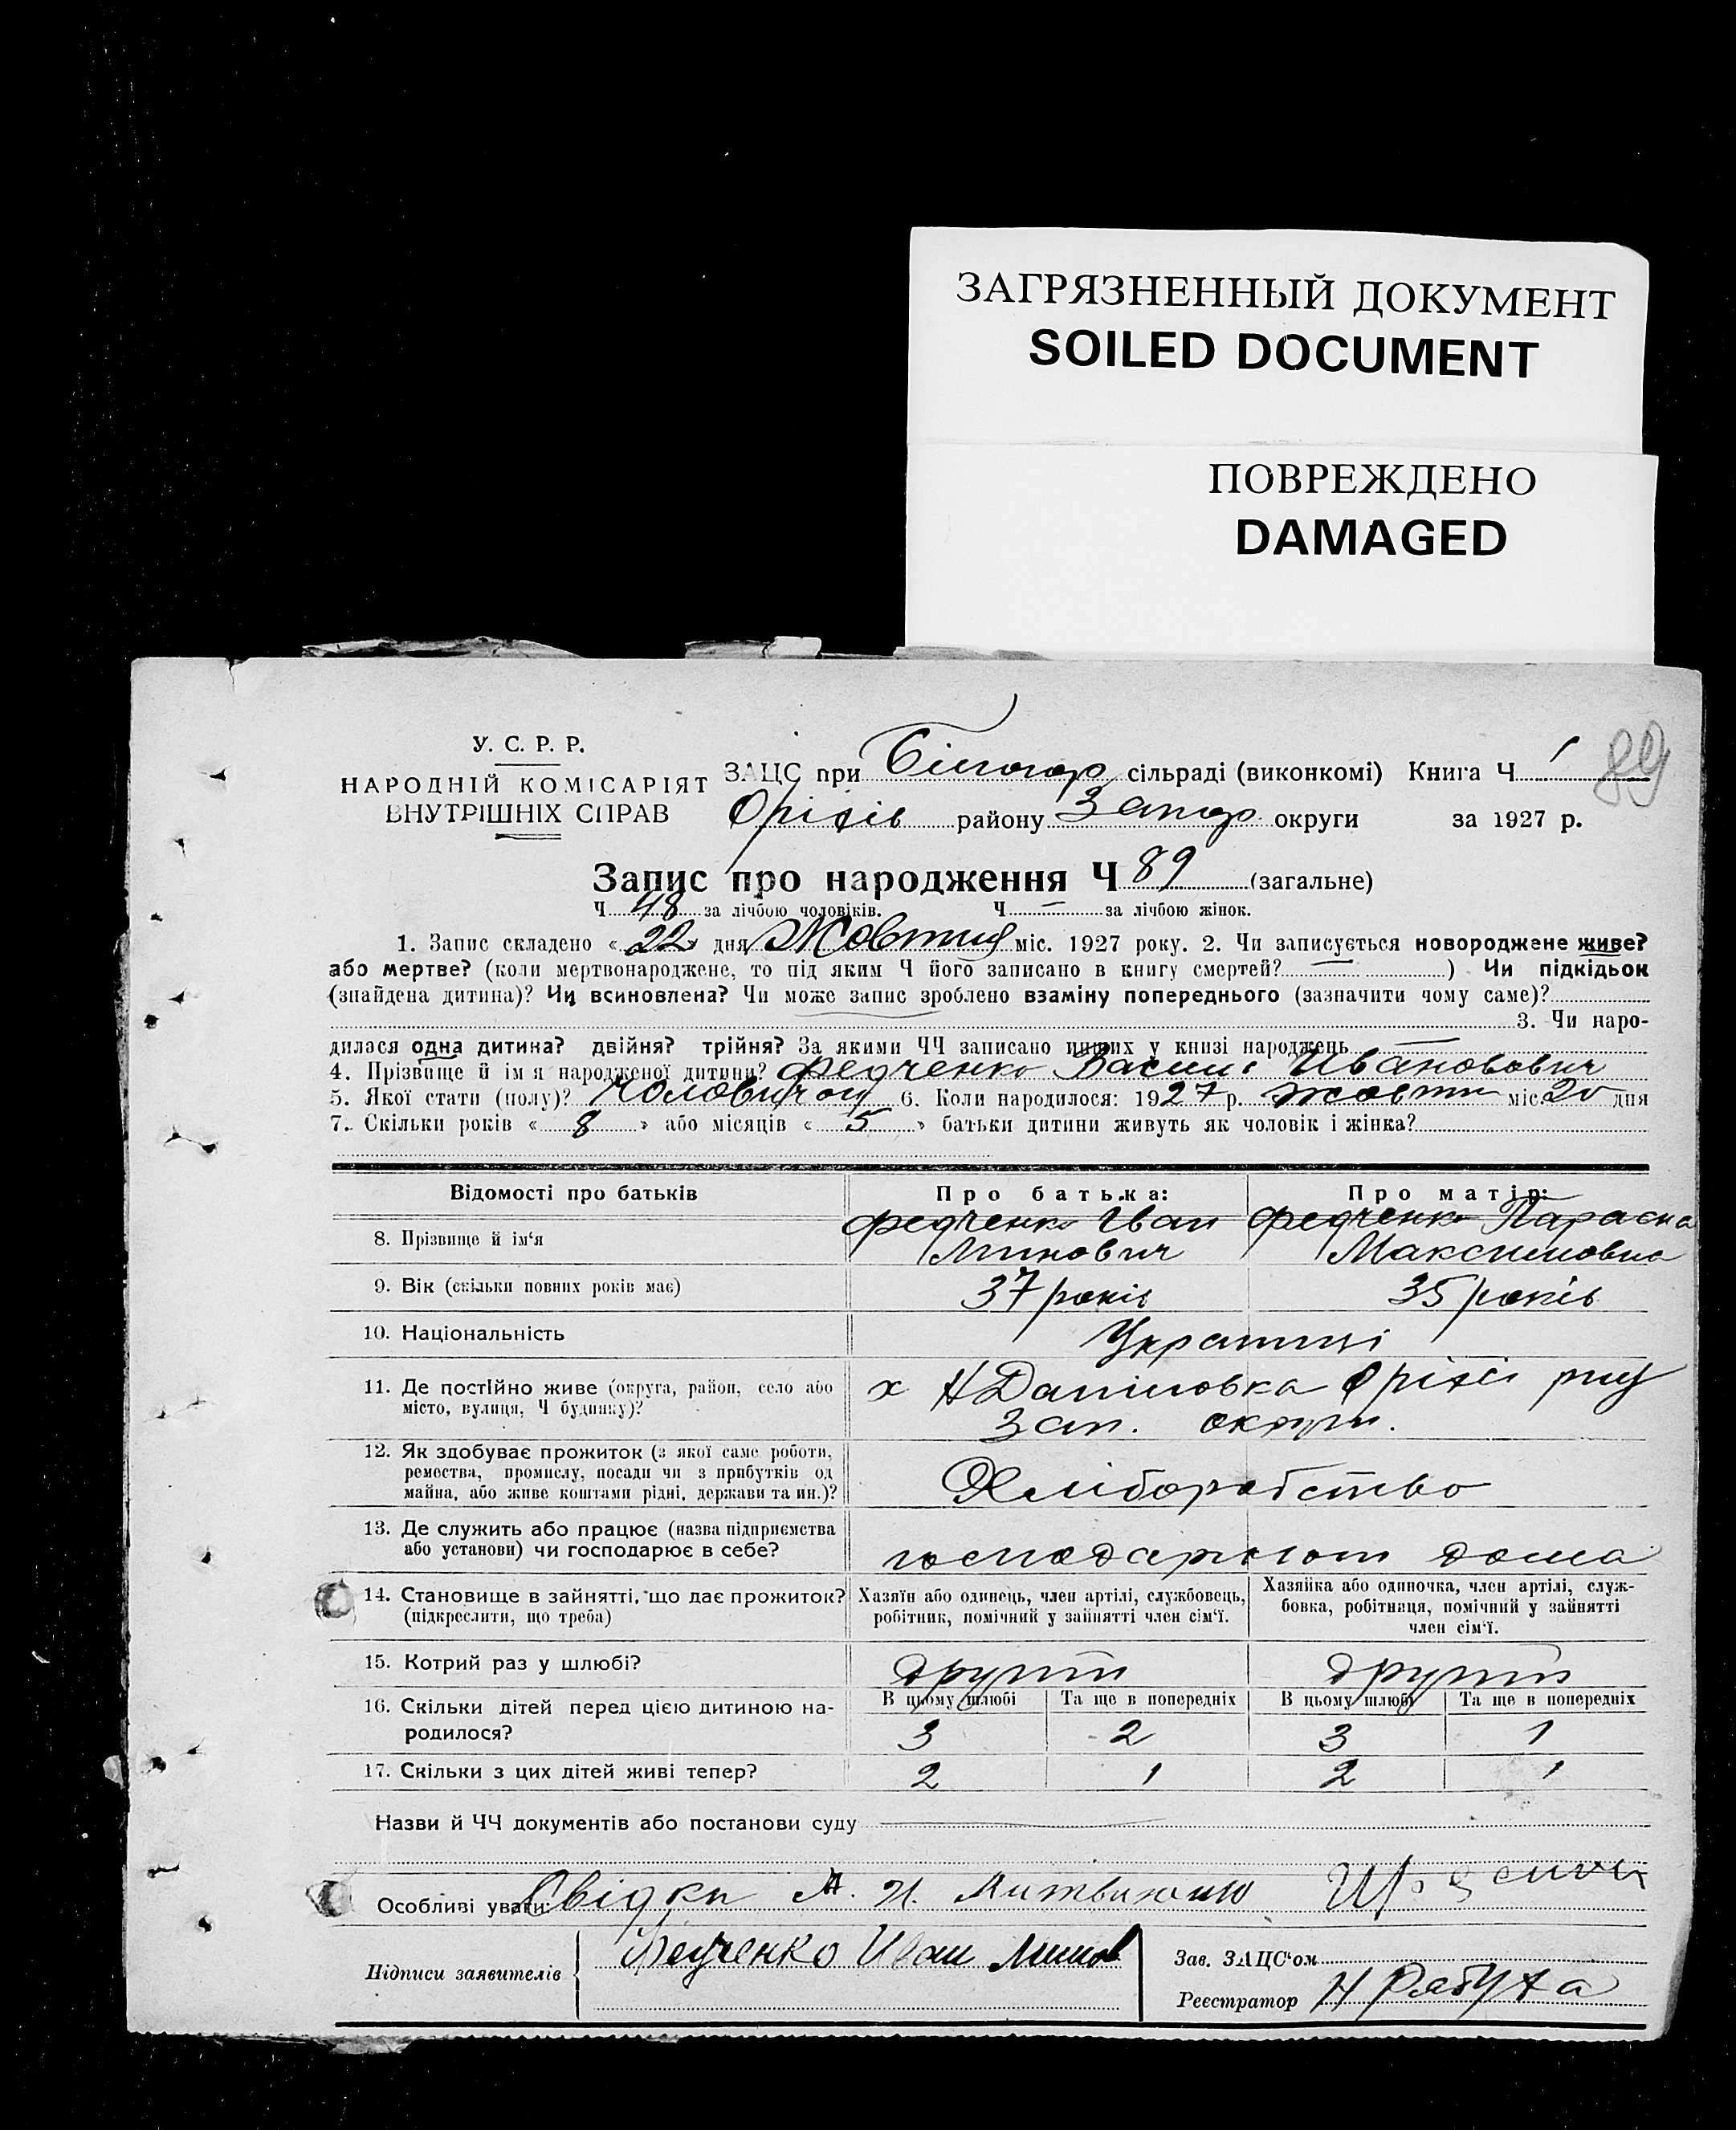 ЗАГРЯЗНЕННЫЙ ДОКУМЕНТ
SOILED DOCUMENT
ПОВРЕЖДЕНО
DAMAGED
У. С. Р. Р.
НАРОДНІЙ КОМІСАРІЯТ
ВНУТРІШНІХ СПРАВ
89
ЗАЦС при Білогор сільраді (виконкомі) Книга Ч 1
Оріхів району Запор округи за 1927 р.
Запис про народження Ч 89 (загальне)
Ч 48 за лічбою чоловіків. Ч — за лічбою жінок.
1. Запис складено « 22 » дня Жовтня міс. 1927 року. 2. Чи записується новороджене живе?
або мертве? (коли мертвонароджене, то під яким Ч його записано в книгу смертей? — ) Чи підкідьок
(знайдена дитина)? Чи всиновлена? Чи може запис зроблено взаміну попереднього (зазначити чому саме)?
3. Чи наро-
дилася одна дитина? двійня? трійня? За якими ЧЧ записано инших у книзі народжень —
4. Прізвище й ім я народженої дитини? Федченко Василь Івановович
5. Якої стати (полу)? Чоловічої 6. Коли народилося: 1927 р. жовтн міс. 20 дня
7. Скільки років « 8 » або місяців « 5 » батьки дитини живуть як чоловік і жінка?
Відомості про батьків
Про батька:
Про матір:
8. Прізвище й ім‘я
Федченко Іван
Минович
Федченко Параска
Максимовна
9. Вік (скільки повних років має)
37 років
35 років
10. Національність
Українці
11. Де постійно живе (округа, район, село або
місто, вулиця, Ч будинку)?
х Н Даніловка Оріхі рну
Зап. округи.
12. Як здобуває прожиток (з якої саме роботи,
ремества, промислу, посади чи з прибутків од
майна, або живе коштами рідні, держави та ин.)?
Хліборобство
13. Де служить або працює (назва підприємства
або установи) чи господарює в себе?
господарюют дома
14. Становище в зайнятті, що дає прожиток?
(підкреслити, що треба)
Хазяїн або одинець, член артілі, службовець,
робітник, помічний у зайнятті член сім‘ї.
Хазяйка або одиночка, член артілі, служ-
бовка, робітниця, помічний у зайнятті
член сім‘ї.
15. Котрий раз у шлюбі?
другий
другий
16. Скільки дітей перед цією дитиною на-
родилося?
В цьому шлюбі Та ще в попередніх В цьому шлюбі Та ще в попередніх
3 2 3 1
17. Скільки з цих дітей живі тепер?
2 1 2 1
Назви й ЧЧ документів або постанови суду
Особливі уваги: Свідки
Підписи заявителів
Федченко Иван Минов
Зав. ЗАЦС‘ом
Реєстратор Н Рябуха